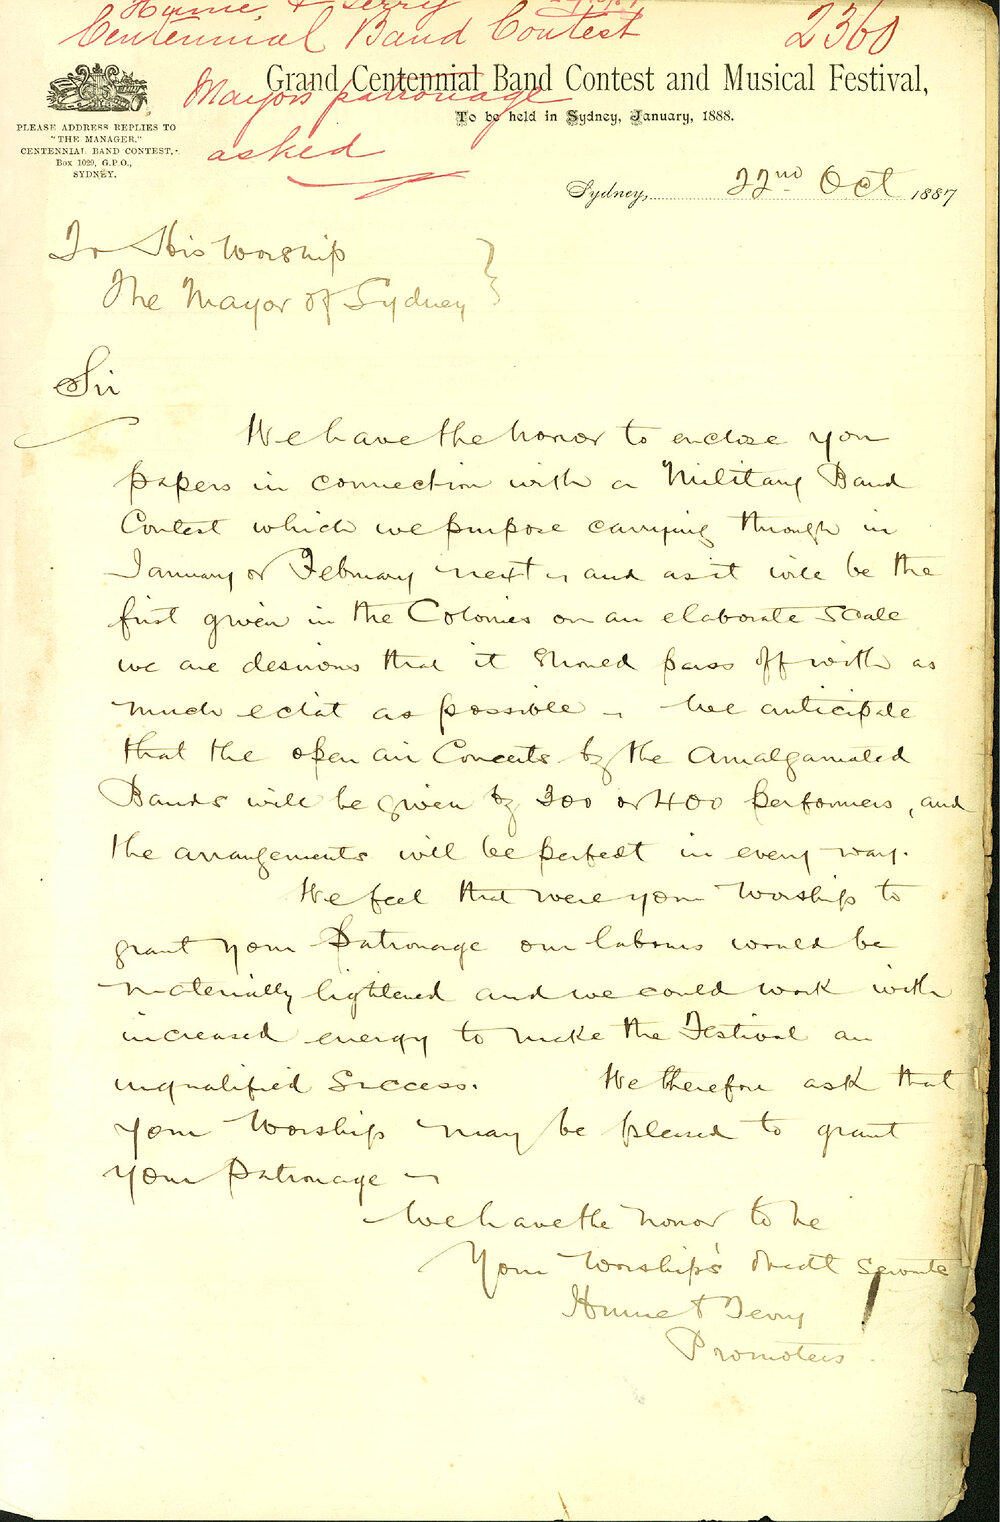 Hume & Terry
Centennial Band Contest 2360
Mayors patronage
asked
Grand Centennial Band Contest and Musical Festival,
To be held in Sydney, January, 1888.
PLEASE ADDRESS REPLIES TO
"THE MANAGER,"
CENTENNIAL BAND CONTEST,
Box 1029, G.P.O.,
SYDNEY.
Sydney, 22nd Oct 1887
To His Worship
The Mayor of Sydney
Sir
We have the honor to enclose you
papers in connection with a Military Band
Contest which we purpose carrying through in
January or February next - and as it will be the
first given in the Colonies on an elaborate scale
we are desirous that it should pass off with as
much eclat as possible - We anticipate
that the open air Concerts by the Amalgamated
Bands will be given by 300 or 400 performers, and
the arrangements will be perfect in every way.
We feel that were your Worship to
grant your Patronage our labours would be
materially lightened and we could work with
increased energy to make the Festival an
unqualified Success. We therefore ask that
your Worship may be pleased to grant
your Patronage -
We have the honor to be
Your Worship's Obedt Servants
Hume & Terry
Promoters.